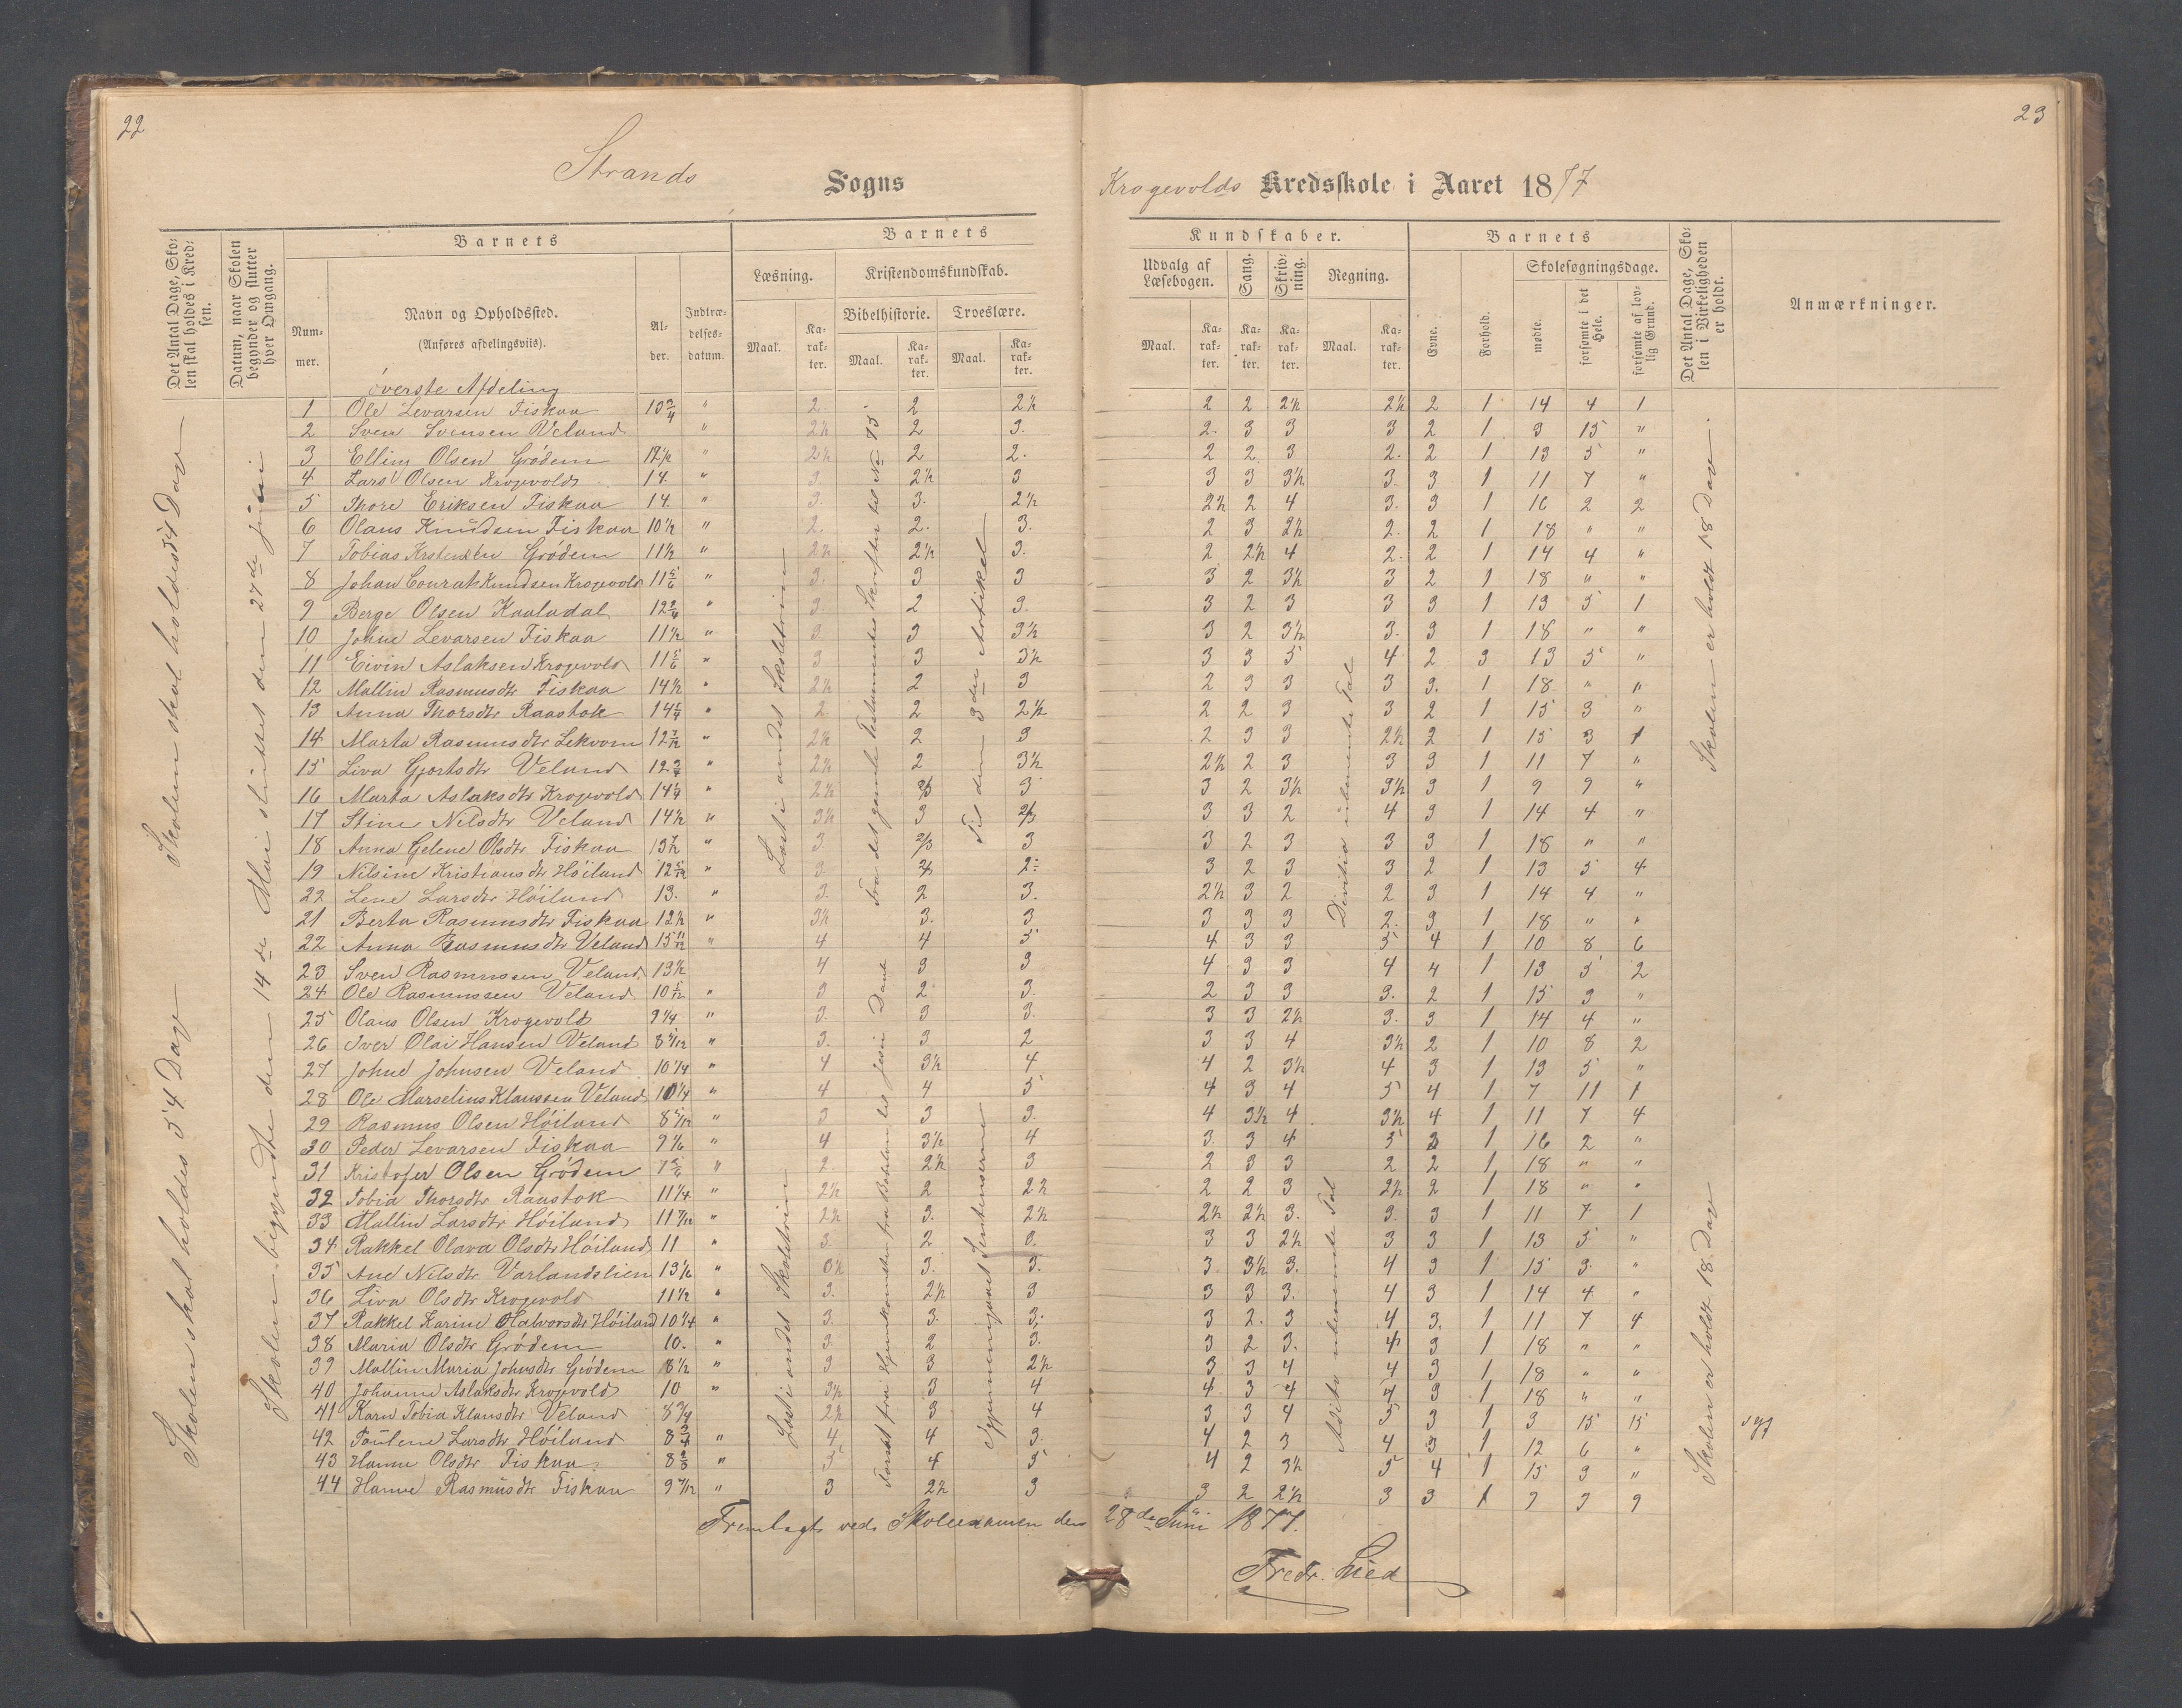 22
23
Strands Sogns
Krogevolds Kredsskole i Aaret 1877
Det Antal Dage, Skolen skal holdes i Kredsen.
Datum, naar Skolen begynder og slutter hver Omgang.
Barnets
Nummer.
Navn og Opholdssted.
(Anføres afdelingsviis).
Alder.
Indtrædelsesdatum.
Barnets
Læsning.
Kristendomskundskab.
Bibelhistorie. Troeslære.
Maal. Karakter. Maal. Karakter. Maal. Karakter.
Kundskaber.
Udvalg af Læsebogen.
Sang.
Skrivning.
Regning.
Maal. Karakter. Karakter. Karakter. Maal. Karakter.
Barnets
Evne.
Forhold.
Skolesøgningsdage.
mødte.
forsømte i det Hele.
forsømte af lovlig Grund.
Det Antal Dage, Skolen i Virkeligheden er holdt.
Anmærkninger.
øverste Afdeling
Skolen skal holdes 54 Dage
Skolen skal holdes 54 Dage
Skolen begyndte den 14de Mai sluttet den 27de juni
1 Ole Levarsen Fiskaa 10 3/4 " 2. 2 2½ 2 2 2½ 2½ 2 1 14 4 1
2 Sven Svensen Veland " 2½ 2 3. 2. 3 3 3 2 1 3 15 "
3 Elling Olsen Grødem 12½ " 2½ 2 2. 2 2 3 2. 2 1 13 5 "
4 Lars Olsen Krogevold 14. " 3 2½ 3 3 3 3½ 3. 3 1 11 7 "
5 Thore Eriksen Fiskaa 14. " 3. 3. 2½ 2½ 2 4 3. 3 1 16 2 2
6 Olaus Knudsen Fiskaa 10½ " 2. 2. 3. 2 3 2½ 2. 2 1 18 " "
7 Tobias Krstensen Grødem 11½ " 2½ 2½ 3. 2 2½ 4 2. 2 1 14 4 "
8 Johan Conrat Knudsen Krogevold 11 5/6 " 3. 3 3 3 2 3½ 3 2 1 18 " "
9 Berge Olsen Kaaladal 12 3/4 " 3. 2 3. 3 2 3 3 3 1 13 5 1
10 Johne Levarsen Fiskaa 11½ " 3 3 3½ 3 2 3½ 3. 3 1 18 " "
11 Eivin Aslaksen Krogevold 11 5/6 " 3 3 3½ 3 3 5 4 2 3 13 5 "
12 Mallin Rasmusdtr Fiskaa 14½ " 2½ 2 3 2 3 3 3 3. 1 18 " "
13 Anna Thorsdtr Raastok 14 1/4 " 2 2 2½ 2 2 3 3 2 1 15 3 "
14 Marta Rasmusdtr Lekvam 12 7/12 " 2½ 2 3 2 3 3 2½ 2 1 15 3 1
15 Liva Gjortsdtr Veland 12 3/4 " 2½ 2 3½ 2½ 2 3 3 3 1 11 7 "
16 Marta Aslaksdtr Krogevold 14 1/4 " 2½ 2/3 3 3 2 3½ 3½ 3 1 9 9 "
17 Stine Nilsdtr Veland 14½ " 3½ 3 2/3 3 3 2 4 3 1 14 4 "
18 Anna Gelene Olsdtr Fiskaa 13½ " 3. 2/3 3 3 2 3 3 3 1 18 " "
19 Nilsine Kristiansdtr Høiland 12 5/12 " 3. 2 2 3 2 3 3 2 1 13 5 4
22 Lene Larsdtr Høiland 13. " 3. 2 3. 2½ 3 2 2 3 1 14 4 "
21 Berta Rasmusdtr Fiskaa 12½ " 3½ 3. 3 3 3 3 2. 3 1 18 " "
22 Anna Rasmusdtr Veland 15 11/12 " 4 4 5 4 3 3 5 4 1 10 8 6
23 Sven Rasmussen Veland 13½ 4 3 3 4 3 3 4 4 1 13 5 2
24 Ole Rasmussen Veland 10 5/12 " 3 2 3. 2 3 3 3. 2 1 15 3 "
25 Olaus Olsen Krogevold 9 1/4 " 3. 3 3. 3 3 2½ 3. 3 1 14 4 "
26 Iver Olai Hansen Veland 8 5/12 " 3. 3 2 3 3 4 3½ 2 1 10 8 2
27 Johne Johnsen Veland 10 1/4 " 4 3½ 4 4 2 3½ 4 3 1 13 5 "
28 Ole Marselius Klaussen Veland 10 1/4 " 4 4 5 4 3 4 5 4 1 7 11 1
29 Rasmus Olsen Høiland 8 5/12 " 3 3 3. 4 3½ 4 3½ 4 1 11 7 4
30 Peder Levarsen Fiskaa 9 1/6 " 4 3½ 4 3. 3 4 5 3 1 16 2 "
31 Kristofer Olsen Grødem 9 5/6 " 2. 2½ 3 2 3 3 2 2 1 18 " "
32 Tobia Thorsdtr Raastok 11 1/4 " 2½ 2 2½ 2 2 3 2½ 2 1 18 " "
33 Mallin Larsdtr Høiland 11 7/12 " 2½ 3. 2½ 2½ 2½ 3. 3. 3 1 11 7 1
34 Rakkel Olava Olsdtr Høiland 11 " 3. 2 3. 3 3 2½ 3 3 1 13 5 "
35 Ane Nilsdtr Varlandslien 13½ " 3½ 3. 3. 3. 3½ 3. 4 3 1 15 3. "
36 Liva Olsdtr Krogevold 11½ " 3. 2½ 3 3 3 3. 4 3 1 14 4. "
37 Rakkel Karine Halvorsdtr Høiland 10 1/4 " 3. 3. 3. 3 2. 3 4 3. 1 11 7 4
38 Maria Olsdtr Grødem 10. " 3. 2 3. 3 2 3. 4 3 1 18 " "
39 Mallin Maria Johnsdtr Grødem 8½ " 3 3 2½ 3 3 4 4 3 1 18 " "
40 Johanne Aslaksdtr Krogevold 10 " 3½ 3 4 4. 3 4 4 3 1 18 " "
41 Karn Tobia Klausdtr Veland 8 3/4 2½ 3 4 3 3 4 5 3 1 3 15 15 syg
42 Taulene Larsdtr Høiland 8 3/4 " 4 4 3. 4 2 3 4 3 1 12 6 "
43 Hanna Olsdtr Fiskaa 8 2/3 " 5 4 5 4 2 3½ 5 4 1 15 3 "
44 Hanne Rasmusdtr Fiskaa 9 5/12 " 3 2½ 3 3 2 2½ 3 3 1 9 9 9
Læst i andet Skoletrin
Fra det gamle Testamentes Skrifter til No 75
Til den 3die Artikel
Division ubenævnte Tal
Skolen er holdt 18 Dage.
Læst i andet Skoletrin
Forat fra Hjemkomsten fra Babylon til Jesu Daab
Gjennemgaaet Sentenserne
Addito ubenævnte Tal
Skolen er holdt 18 Dage
Fremlagt ved Skoleexamen den 28de Juni 1877.
Fredr. Lied